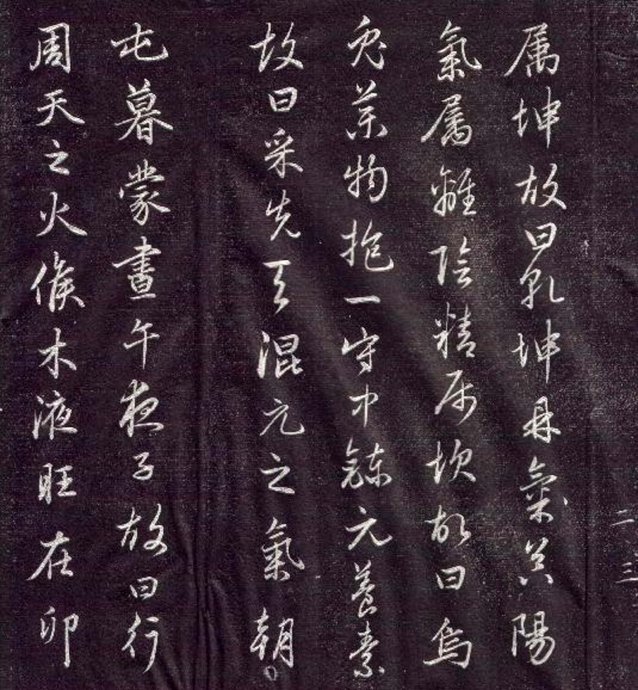 二三
属坤故曰乹坤鼎氣陽
氣属離陰精属坎故曰烏
兔藥物抱一守中錬元養素
故曰采先天混元之氣朝
屯暮蒙晝午夜子故曰行
周天之火候木液旺在卯